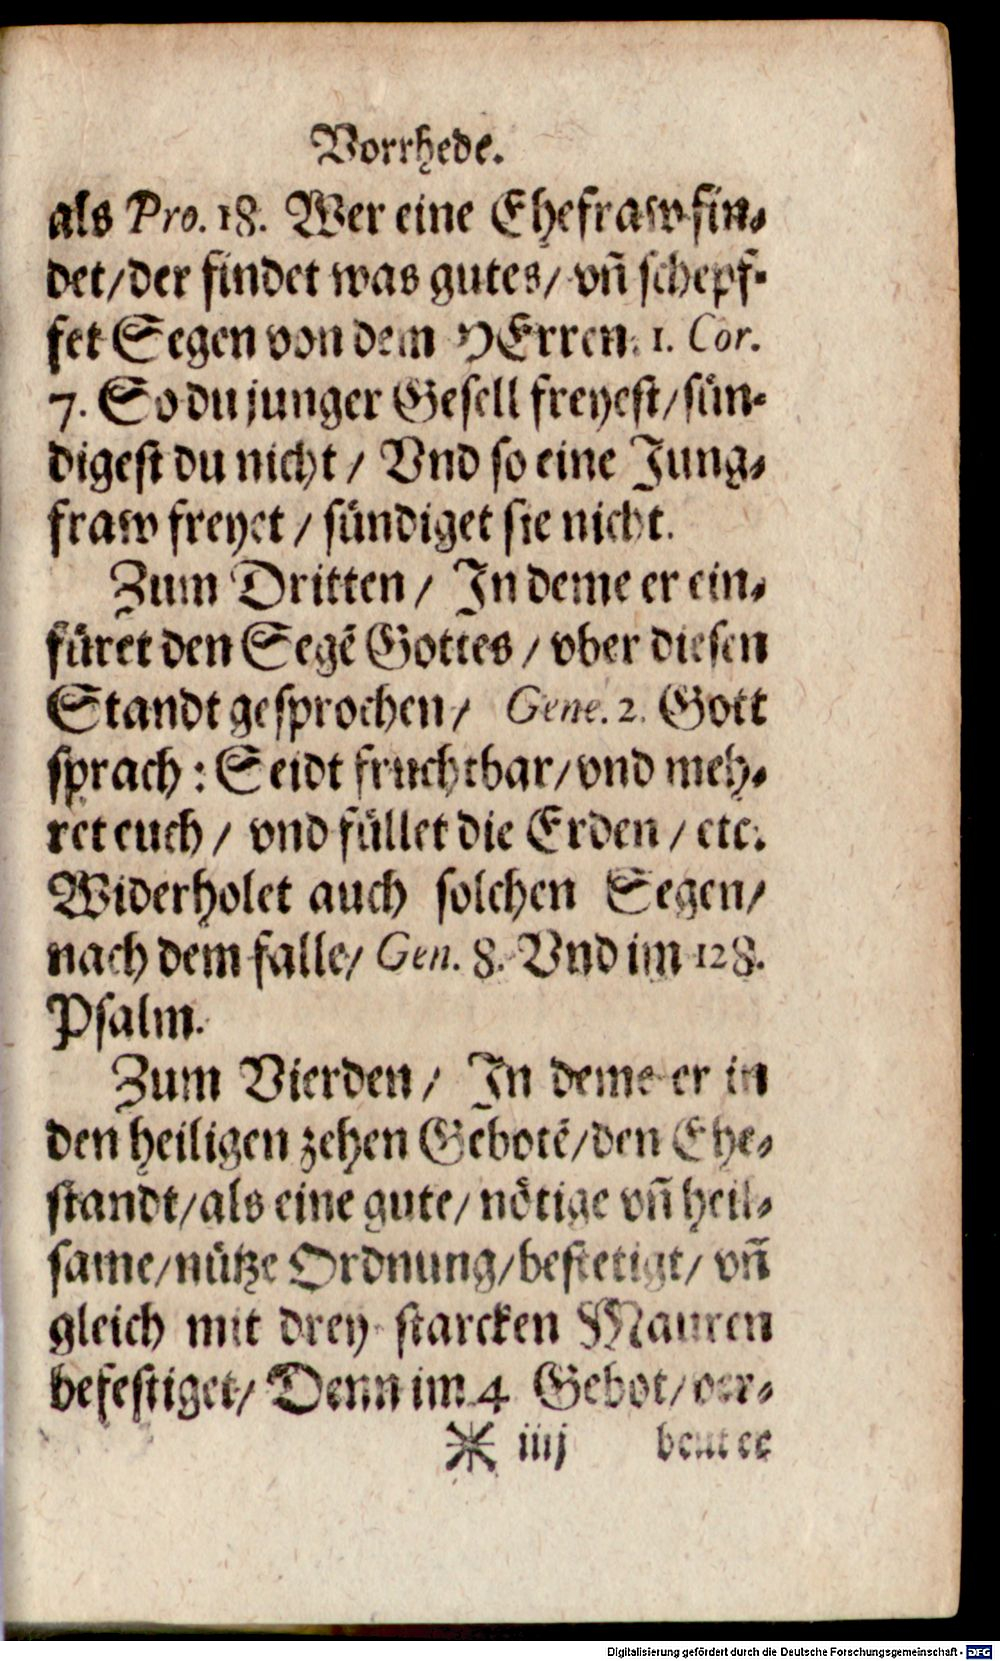 Vorrhede.
als Pro. 18. Wer eine Ehefraw fin-
det/der findet was gutes/ vñ schepf-
fet Segen von dem HErren. 1. Cor.
7. So du junger Gesell freyest/sün-
digest du nicht / Vnd so eine Jung-
fraw freyet / sündiget sie nicht.
Zum Dritten / In deme er ein-
füret den Segẽ Gottes / vber diesen
Standt gesprochen / Gene. 2. Gott
sprach : Seidt fruchtbar/vnd meh-
ret euch / vnd füllet die Erden / etc.
Widerholet auch solchen Segen/
nach dem falle/ Gen. 8. Vnd im 128.
Psalm.
Zum Vierden / In deme er in
den heiligen zehen Gebotẽ/den Ehe-
standt/als eine gute/ nötige vñ heil-
same/nütze Ordnung/bestetigt/ vñ
gleich mit drey starcken Mauren
befestiget/ Denn im 4 Gebot/ver-
* iiij beut er
Digitalisierung gefördert durch die Deutsche Forschungsgemeinschaft - DFG